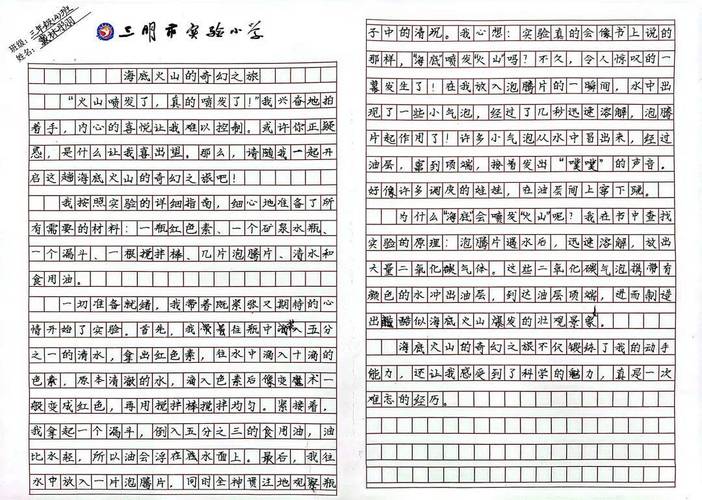 三明市实验小学
班级：三年级(4)班
姓名：
海底火山的奇幻之旅
“火山喷发了，真的喷发了！”我兴奋地拍
着手，内心的喜悦让我难以控制。或许你正疑
惑，是什么让我喜出望。那么，请随我一起开
启这趟海底火山的奇幻之旅吧！
我按照实验的详细指南，细心地准备了所
有需要的材料：一瓶红色素、一个矿泉水瓶、
一个漏斗、一根搅拌棒、几片泡腾片、清水和
食用油。
一切准备就绪，我带着既紧张又期待的心
情开始了实验。首先，我带着往瓶中五分
之一的清水，拿出红色素，往水中滴入十滴的
色素，原本清澈的水，滴入色素后像变魔术一
般变成红色，再用搅拌棒搅拌均匀。紧接着，
我拿起一个漏斗，倒入五分之三的食用油，油
比水轻，所以油会浮在水面上。最后，我往
水中放入一片泡腾片，同时全神惯注地观察瓶
子中的清况。我心想：实验真的会像书上说的
那样，“海底”喷发“火山”吗？不久，令人惊叹的一
幕发生了！在我放入泡腾片的一瞬间，水中出
现了一些小气泡，经过了几秒迅速溶解，泡腾
片起作用了！许多小气泡从水中冒出来，经过
油层，窜到顶端，接着发出“噗噗”的声音。
好像许多调皮的娃娃，在油层间上窜下跳。
为什么“海底”会喷发“火山”呢？我在书中查找
实验的原理：泡腾片遇水后，迅速溶解，放出
大量二氧化碳气体。这些二氧化碳气泡携带有
颜色的水冲出油层，到达油层顶端，进而制造
出酷似海底火山爆发的壮观景象。
海底火山的奇幻之旅不仅锻炼了我的动手
能力，还让我感受到了科学的魅力，真是一次
难忘的经历。